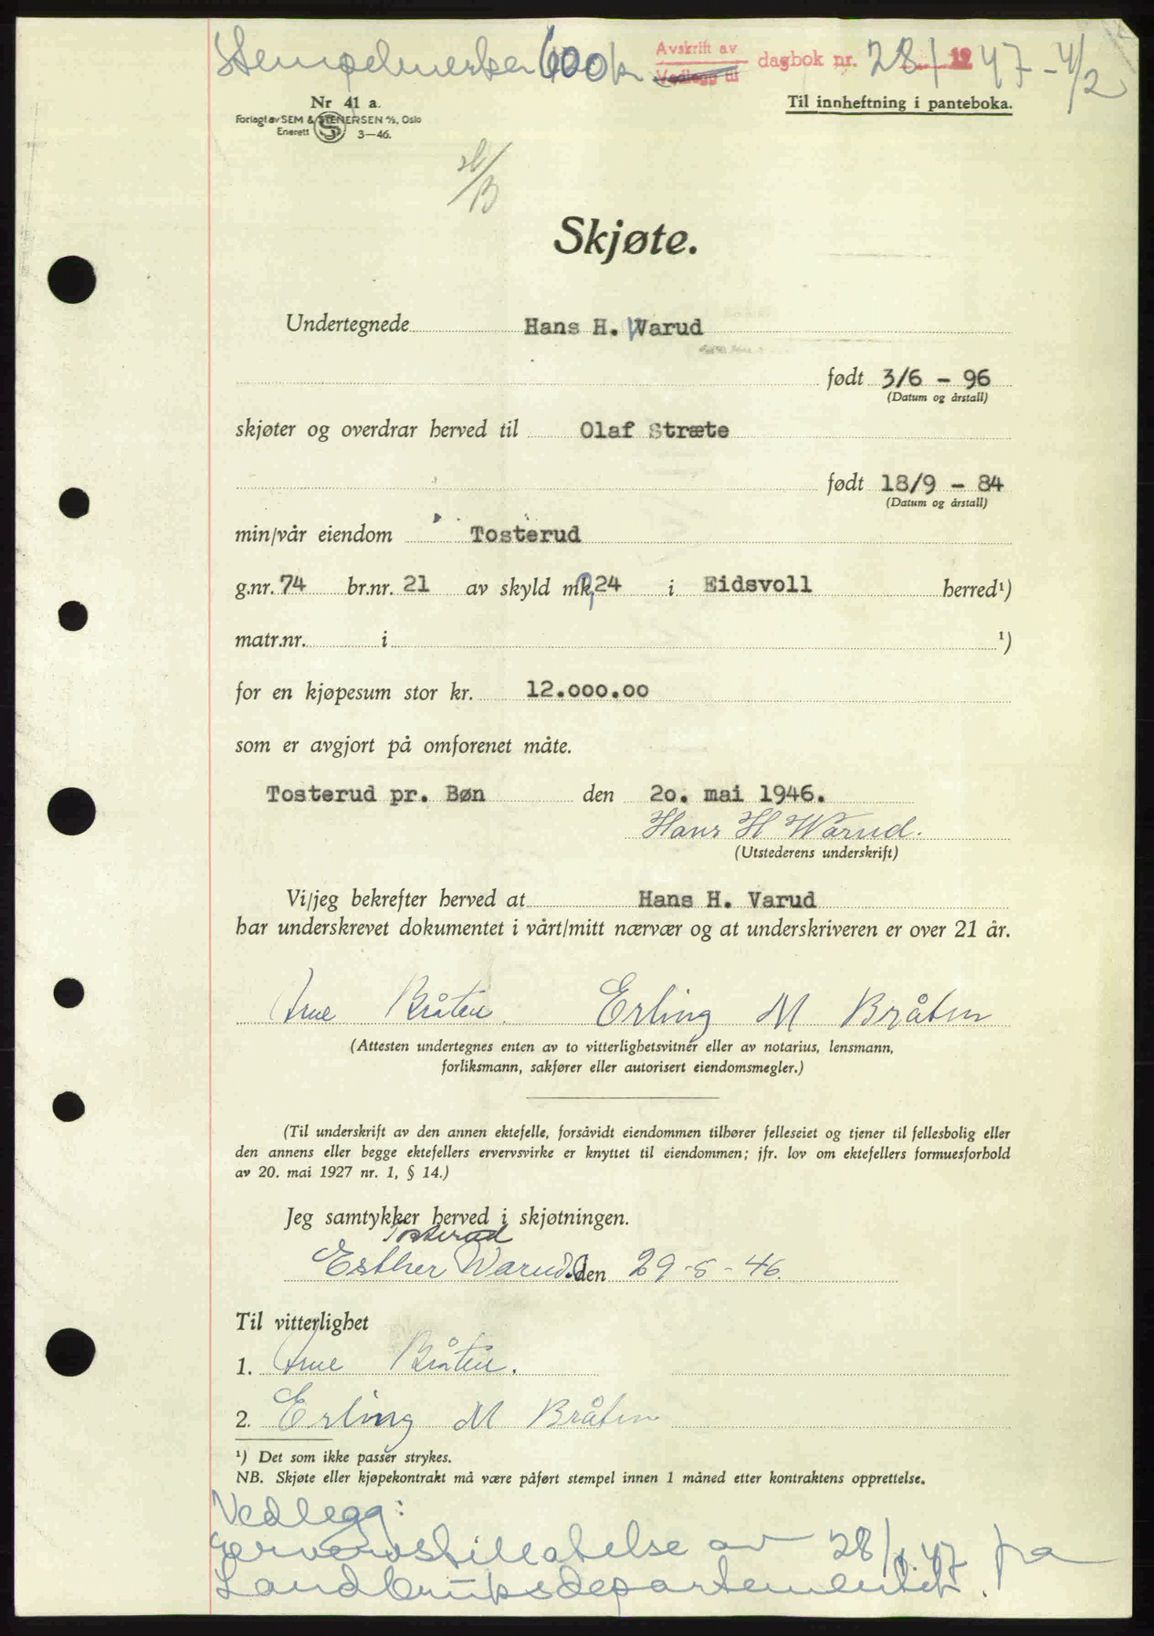 Stempelmerker 600 kr Avskrift av dagbok nr. 281 1947 - 4/2
Vedlegg til
Nr 41 a. Til innheftning i panteboka.
Forlagt av SEM & STENERSEN A/S, Oslo
Enerett S 3-46.
Skjøte.
Undertegnede Hans H. Warud
født 3/6 - 96
(Datum og årstall)
skjøter og overdrar herved til Olaf Stræte
født 18/9 - 84
(Datum og årstall)
min/vår eiendom Tosterud
g.nr. 74 br.nr. 21 av skyld mk 24 i Eidsvoll herred¹)
matr.nr. i ¹)
for en kjøpesum stor kr. 12.000.00
som er avgjort på omforenet måte.
Tosterud pr. Bøn den 20. mai 1946.
Hans H Warud.
(Utstederens underskrift)
Vi/jeg bekrefter herved at Hans H. Varud
har underskrevet dokumentet i vårt/mitt nærvær og at underskriveren er over 21 år.
Arne Bråten. Erling M Bråten
(Attesten undertegnes enten av to vitterlighetsvitner eller av notarius, lensmann,
forliksmann, sakfører eller autorisert eiendomsmegler.)
(Til underskrift av den annen ektefelle, forsåvidt eiendommen tilhører felleseiet og tjener til fellesbolig eller
den annens eller begge ektefellers ervervsvirke er knyttet til eiendommen; jfr. lov om ektefellers formuesforhold
av 20. mai 1927 nr. 1, § 14.)
Jeg samtykker herved i skjøtningen.
Tosterud
Esther Warud. den 29-5-46.
Til vitterlighet
1. Arne Bråten.
2. Erling M Bråten
¹) Det som ikke passer strykes.
NB. Skjøte eller kjøpekontrakt må være påført stempel innen 1 måned etter kontraktens opprettelse.
Vedlegg:
Ervervstillatelse av 28/1 47 fra
Landbruksdepartementet.